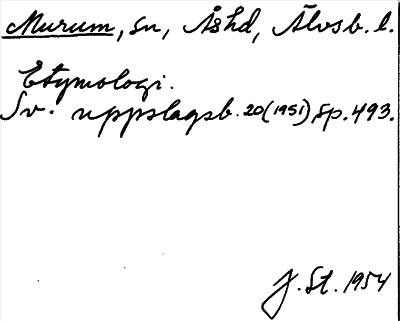 Murum, sn, Åshd, Älvsb. l.
Etymologi.
Sv. uppslagsb. 20 (1951), sp. 493.
J. St. 1954